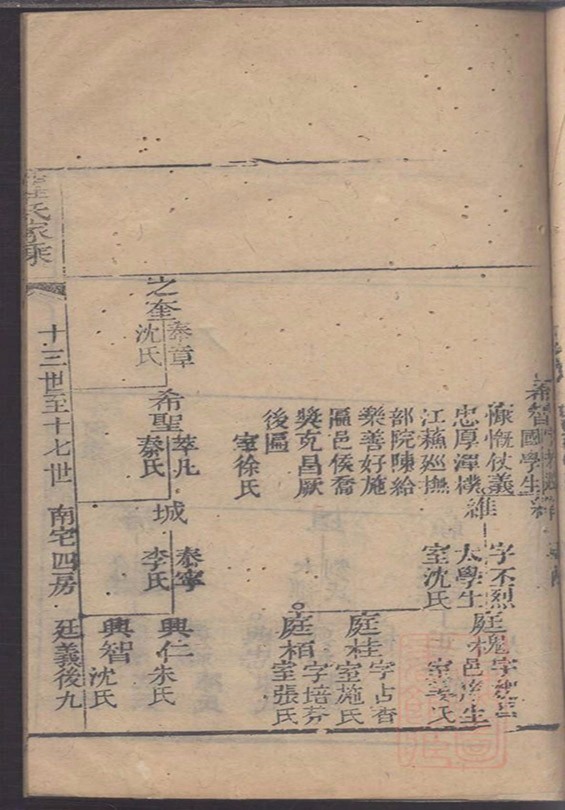 希智
國學生
慷慨仗義
忠厚渾樸
江蘇廵撫
部院陳給
樂善好施
匾邑侯喬
奬克昌厥
後匾
室徐氏
維
字丕烈
太學生
室沈氏
庭槐
邑庠生
庭桂
字占香
室施氏
庭栢
字培芬
室張氏
之奎
奏章
沈氏
希聖
萃凡
秦氏
城
泰寧
李氏
興仁
朱氏
興智
沈氏
氏家乘
十三世至十七世
南宅四房
廷義後九